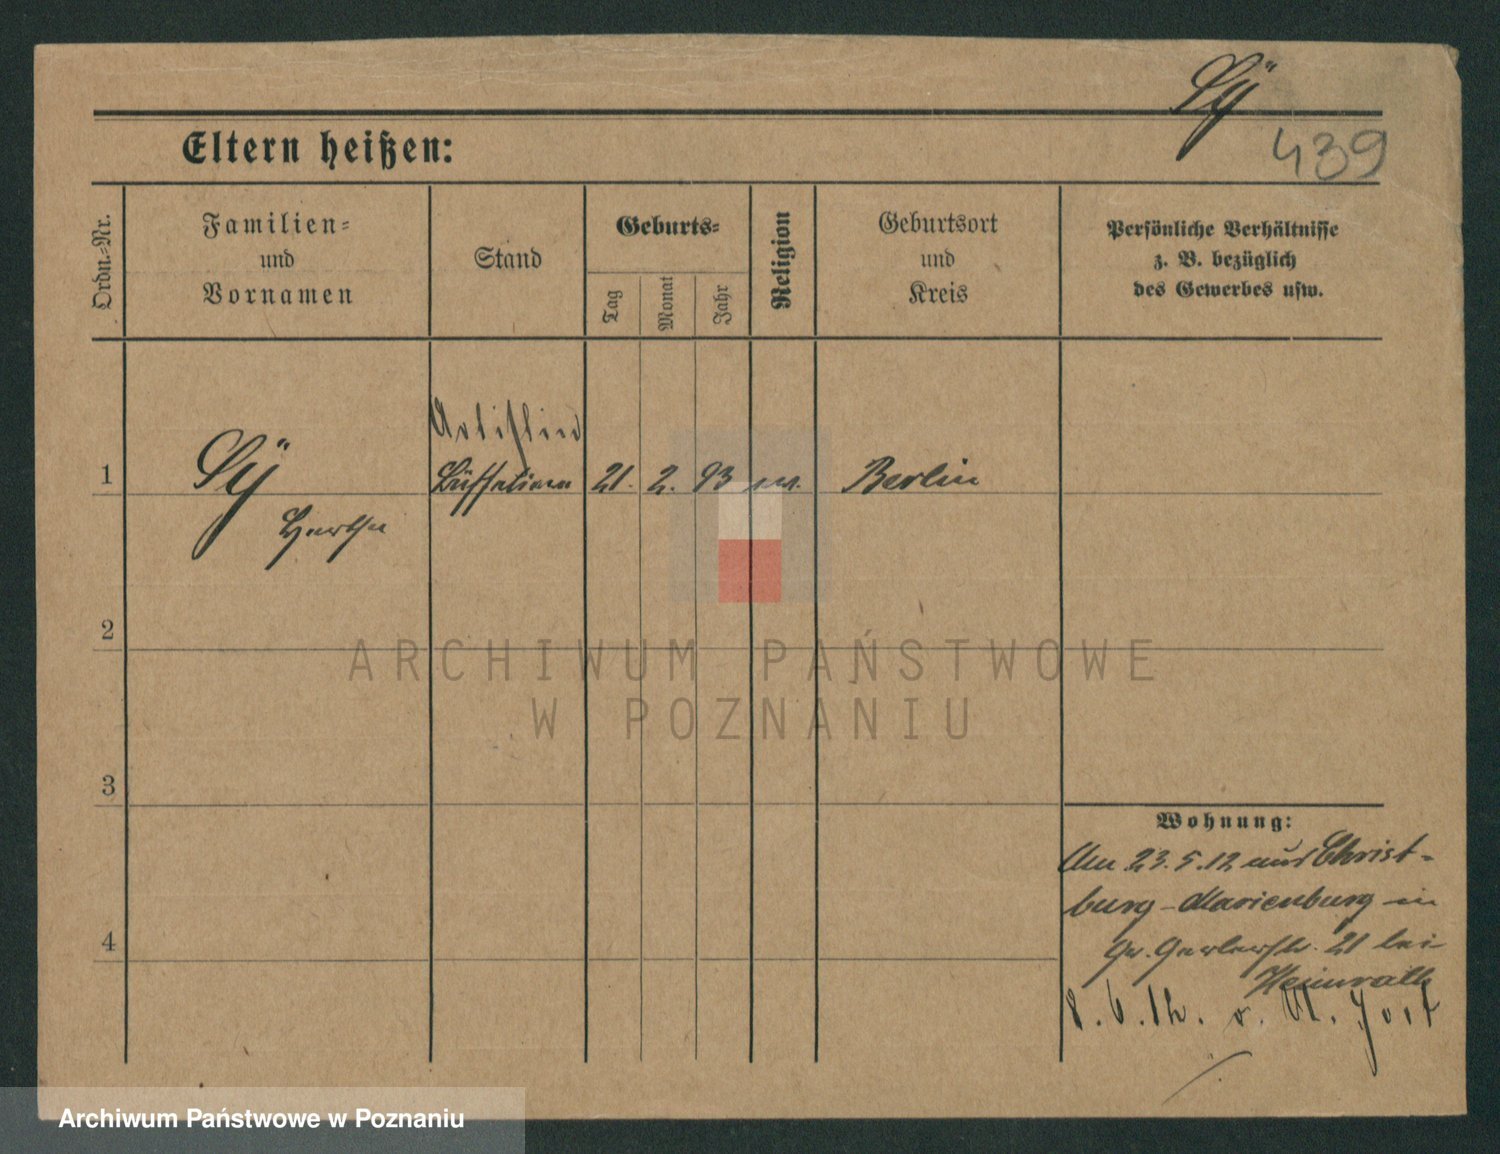 Sÿ
439
Eltern heißen:
Ordn.-Nr.
Familien-
und
Vornamen
Stand
Geburts-
Tag
Monat
Jahr
Religion
Geburtsort
und
Kreis
Persönliche Verhältnisse
z. B. bezüglich
des Gewerbes usw.
Artistin
1 Sÿ 21. 2. 93 Berlin
Hertha
2
3
4
Wohnung:
Am 23.5.12 aus Christ-
burg-Marienburg in
Gr. Gerberstr. 21 bei
Heimrath
8.6.12.
ARCHIWUM PAŃSTWOWE
W POZNANIU
Archiwum Państwowe w Poznaniu